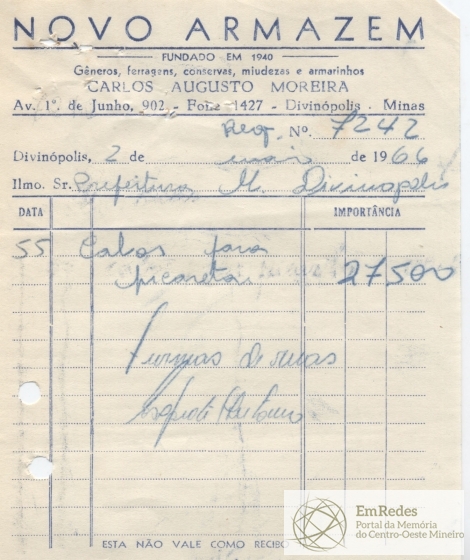 NOVO ARMAZEM
FUNDADO EM 1940
Gêneros, ferragens, conservas, miudezas e armarinhos
CARLOS AUGUSTO MOREIRA
Av. 1º. de Junho, 902 - Fone 1427 - Divinópolis - Minas
Req. Nº. 7242
Divinópolis, 2 de maio de 1966
Ilmo. Sr. Prefeitura M. Divinopolis
DATA IMPORTÂNCIA
55 Cabos para
picareta 27500
Turmas de ruas
ESTA NÃO VALE COMO RECIBO
EmRedes
Portal da Memória
do Centro-Oeste Mineiro